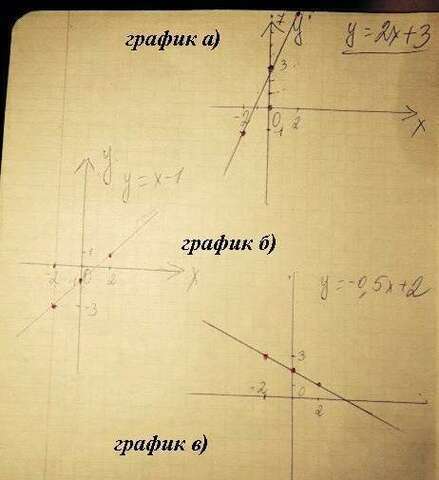 график а)
7 y
y = 2x+3
3
-2 0 2
-1
x
y
y = x-1
график б)
1
-2 0 2
-1
x
-3
y = -0,5x+2
3
-2 0
2
график в)